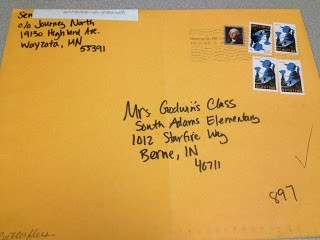 Sen
c/o Journey North
19150 Highland Ave.
Wayzata, MN
55391
Mrs Godwin's Class
South Adams Elementary
1012 Starfire Way
Berne, IN
46711
897